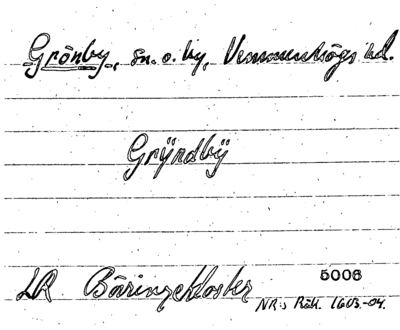 Grönby, sn. o. by, Vemmenhögs hd.
Grÿndbÿ
LR Böringekloster 5006
NR:s Räk. 1603-04.